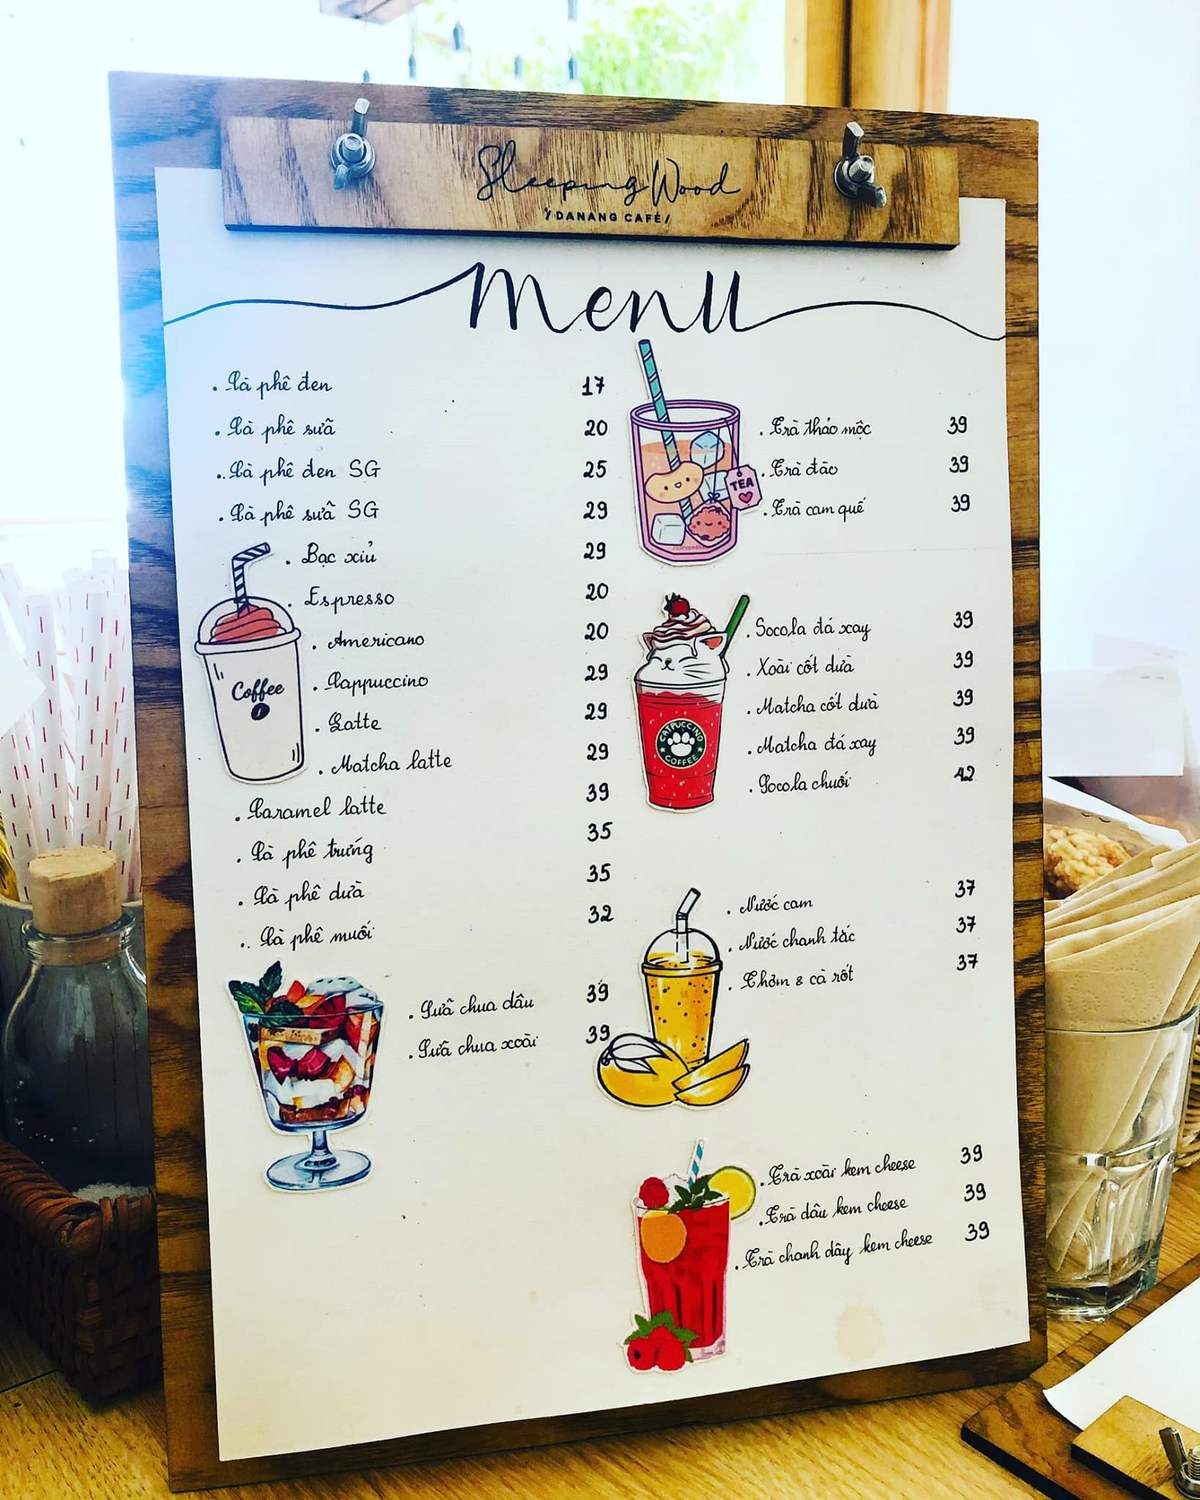 Sleeping Wood
/DANANG CAFÉ/
Menu
. Cà phê đen 17
. Cà phê sữa 20
. Cà phê đen SG 25
. Cà phê sữa SG 29
. Bạc xiủ 29
. Espresso 20
. Americano 20
. Cappuccino 29
. Latte 29
. Matcha latte 29
. Caramel latte 39
. Cà phê trứng 35
. Cà phê dừa 35
. Cà phê muối 32
Coffee
. Sữa chua dâu 39
. Sữa chua xoài 39
TEA
. Trà thảo mộc 39
. Trà đào 39
. Trà cam quế 39
. Socola đá xay 39
. Xoài cốt dừa 39
. Matcha cốt dừa 39
. Matcha đá xay 39
. Socola chuối 42
CATPUCCINO
COFFEE
. Nước cam 37
. Nước chanh tắc 37
. Thơm & cà rốt 37
. Trà xoài kem cheese 39
. Trà dâu kem cheese 39
. Trà chanh dây kem cheese 39